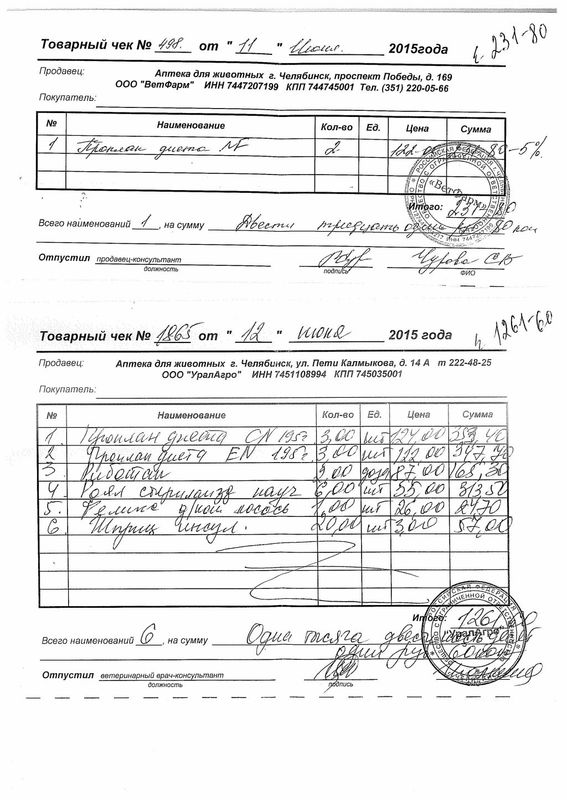 Товарный чек № 498. от "11" Июня. 2015года
ч. 231-80
Продавец: Аптека для животных г. Челябинск, проспект Победы, д. 169
ООО "ВетФарм" ИНН 7447207199 КПП 744745001 Тел. (351) 220-05-66
Покупатель:
№ Наименование Кол-во Ед. Цена Сумма
1 Проплан диета 2 122-00 231-80 -5%
Итого: 231 80
Всего наименований 1, на сумму Двести тридцать один 80 коп
Отпустил продавец-консультант Чурова С В
должность подпись ФИО
Товарный чек № 1865 от "12" июня 2015 года
ч. 1261-60
Продавец: Аптека для животных г. Челябинск, ул. Пети Калмыкова, д. 14 А т 222-48-25
ООО "УралАгро" ИНН 7451108994 КПП 745035001
Покупатель:
№ Наименование Кол-во Ед. Цена Сумма
1. Проплан диета CN 195г 3,00 шт 124,00 353,40
2 Проплан диета EN 195г 3,00 шт 122,00 347,70
3. 2,00 доза 87,00 165,30
4 Роял стерилайзд пауч 6,00 шт 55,00 313,50
5. Феликс д/кош лосось 1,00 шт 26,00 24,70
6. Шприц инсул. 20,00 шт 3,00 57,00
Итого: 1261
"УралАгро"
Всего наименований 6, на сумму Одна тысяча двести
один руб 60 коп
Отпустил ветеринарный врач-консультант
должность подпись